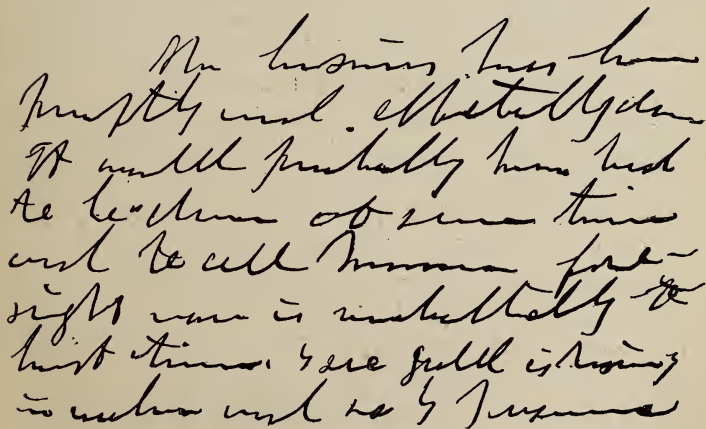 The business has been
promptly and effectually done
It would probably have had
to be done at some time
and to all human fore-
sight now is undoubtedly the
best time. gold is rising
in and so I presume